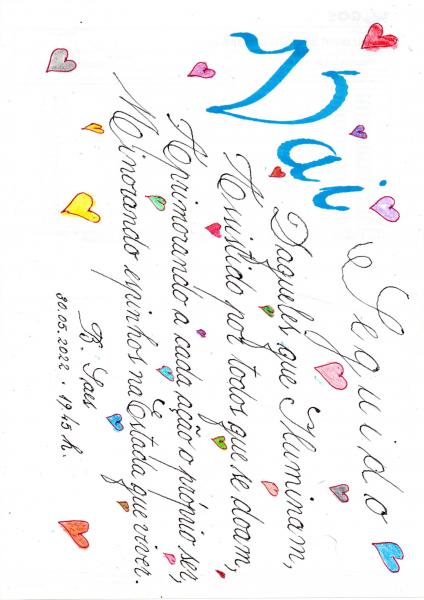 Vai
Seguido
Daqueles que Iluminam,
Assistido por todos que se doam,
Aprimorando à cada ação o próprio ser,
Minorando espinhos na Estada que viver.
B. Saes
30.05.2022 . 19,45 h.